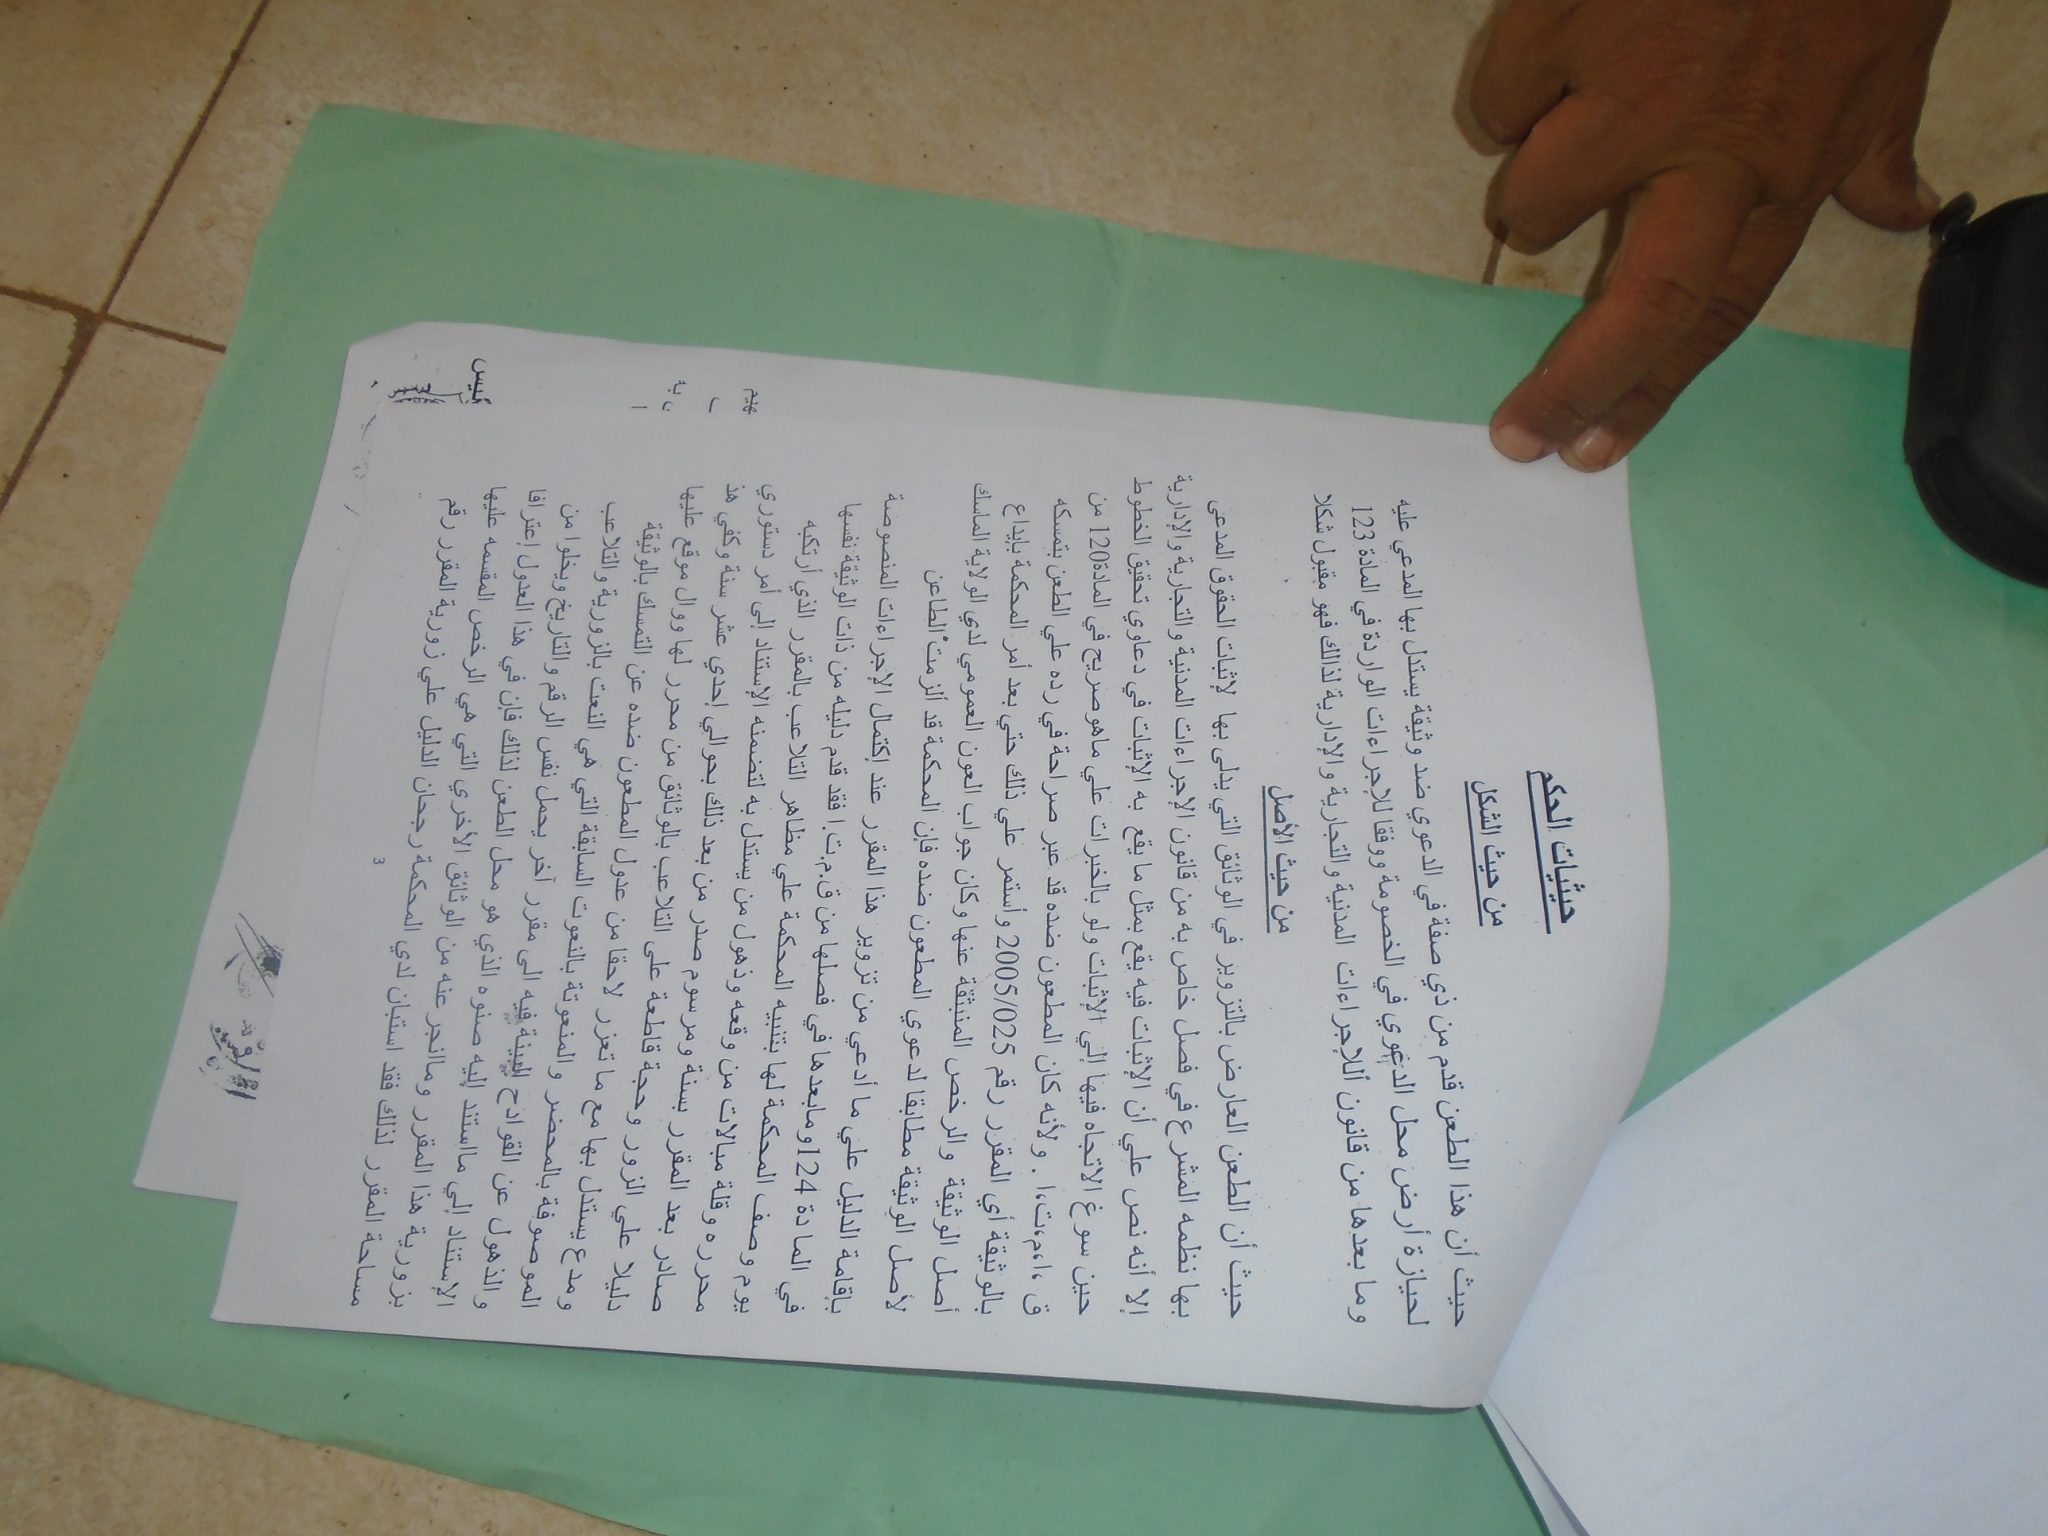 حيثيات الحكم
من حيث الشكل
حيث أن هذا الطعن قدم من ذي صفة في الدعوي ضد وثيقة يستدل بها المدعي عليه
لحيازة أرض محل الدعوي في الخصومة ووفقا للإجراءات الواردة في المادة 123
وما بعدها من قانون أللإجراءات المدنية والتجارية والإدارية لذالك فهو مقبول شكلا
من حيث الأصل
حيث أن الطعن العارض بالتزوير في الوثائق التي يدلى بها لإثبات الحقوق المدعى
بها نظمه المشرع في فصل خاص به من قانون الإجراءات المدنية والتجارية والإدارية
إلا أنه نص علي أن الإثبات فيه يقع بمثل ما يقع به الإثبات في دعاوي تحقيق الخطوط
حين سوغ الاتجاه فيها إلي الإثبات ولو بالخبرات علي ماهوصريح في المادة120 من
ق ،ا،م،ت،ا . ولأنه كان المطعون ضده قد عبر صراحة في رده علي الطعن بتمسكه
بالوثيقة أي المقرر رقم 2005/025 وأستمر علي ذلك حتي بعد أمر المحكمة بإيداع
أصل الوثيقة والرخص المنبثقة عنها وكان جواب العون العمومي لدي الولاية الماسك
لأصل الوثيقة مطابقا لدعوي المطعون ضده فإن المحكمة قد ألزمت الطاعن
بإقامة الدليل علي ما أدعي من تزوير هذا المقرر عند إكتمال الإجراءات المنصوصة
في المادة 124 ومابعدها في فصلها من ق.م.ت.ا فقد قدم دليله من ذات الوثيقة نفسها
يوم وصف المحكمة لها بتنبيه المحكمة علي مظاهر التلاعب بالمقرر الذي أرتكبه
محرره وقلة مبالات من وقعه وذهول من يستدل به لتضمنه الإستناد إلى أمر دستوري
صادر بعد المقرر بسنة ومرسوم صدر من بعد ذلك بحوالي إحدي عشر سنة وكفي هذ
دليلا علي الزور وحجة قاطعة على التلاعب بالوثائق من محرر لها ووال موقع عليها
ومدع يستدل بها مع ما تعزر لاحقا من عدول المطعون ضده عن التمسك بالوثيقة
الموصوفة بالمحضر والمنعوتة بالنعوت السابقة التي هي النعت بالزورية والتلاعب
والذهول عن القوادح البينة فيه الى مقرر آخر يحمل نفس الرقم والتاريخ ويخلوا من
الإستناد إلي ماأستند إليه صنوه الذي هو محل الطعن لذلك فإن في هذا العدول إعترافا
بزورية هذا المقرر وماانجر عنه من الوثائق الأخري التي هي الرخص المقسمه عليها
مساحة المقرر لذلك فقد استبان لدي المحكمة رجحان الدليل علي زورية المقرر رقم
3